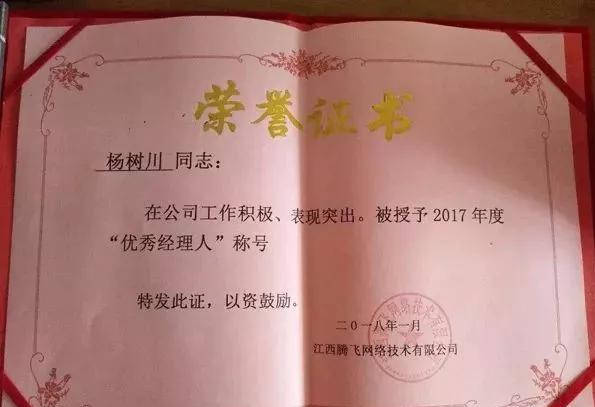 荣誉证书
杨树川 同志：
在公司工作积极、表现突出。被授予 2017 年度
“优秀经理人”称号
特发此证，以资鼓励。
二〇一八年一月
江西腾飞网络技术有限公司